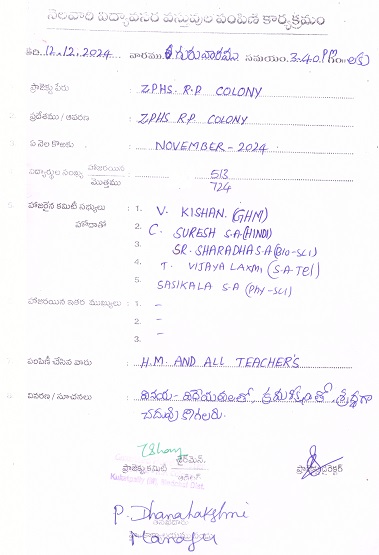 నెలవారి విద్యావసర వస్తువుల పంపిణి కార్యక్రమం
తేది. 12.12.2024 వారము గురువారము సమయం. 3.40
ప్రాజెక్టు పేరు : Z.P.H.S. R.P COLONY
ప్రదేశము / ఆవరణ : ZPHS R.P COLONY
ఏ నెల కొరకు : NOVEMBER - 2024
విద్యార్థుల సంఖ్య హాజరయిన : 513
మొత్తము 724
హాజరైన కమిటీ సభ్యులు : 1. V. KISHAN. (GHM)
హోదాతో 2. C. SURESH S.A (HINDI)
3. SR. SHARADHA S.A (Bio-SCI)
4. T. VIJAYA LAXMI (S.A Tel)
5. SASIKALA S.A (Phy-SCI)
హాజరయిన ఇతర ముఖ్యులు : 1. -
2. -
3. -
పంపిణీ చేసిన వారు : H.M. AND ALL TEACHER'S
వివరణ / సూచనలు : వినయ - విధేయతలతో, క్రమశిక్షణతో, శ్రద్ధగా
చదువుకోగలరు.
ప్రాజెక్టు కమిటీ ఛైర్మెన్.
P. Dhanalakshmi
Manager